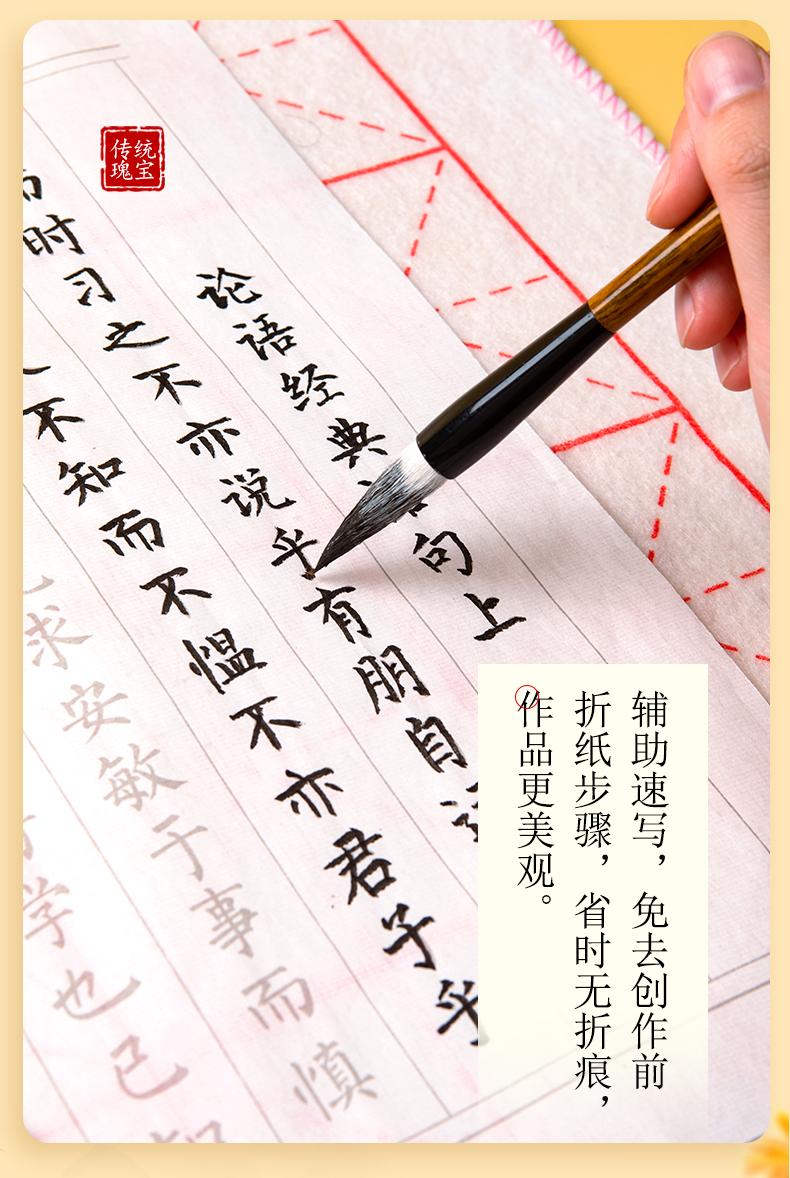 传统
瑰宝
论语经典句上
时习之不亦说乎有朋自
不知而不愠不亦君子乎
求安敏于事而慎
学也已
辅助速写，免去创作前
折纸步骤，省时无折痕，
作品更美观。